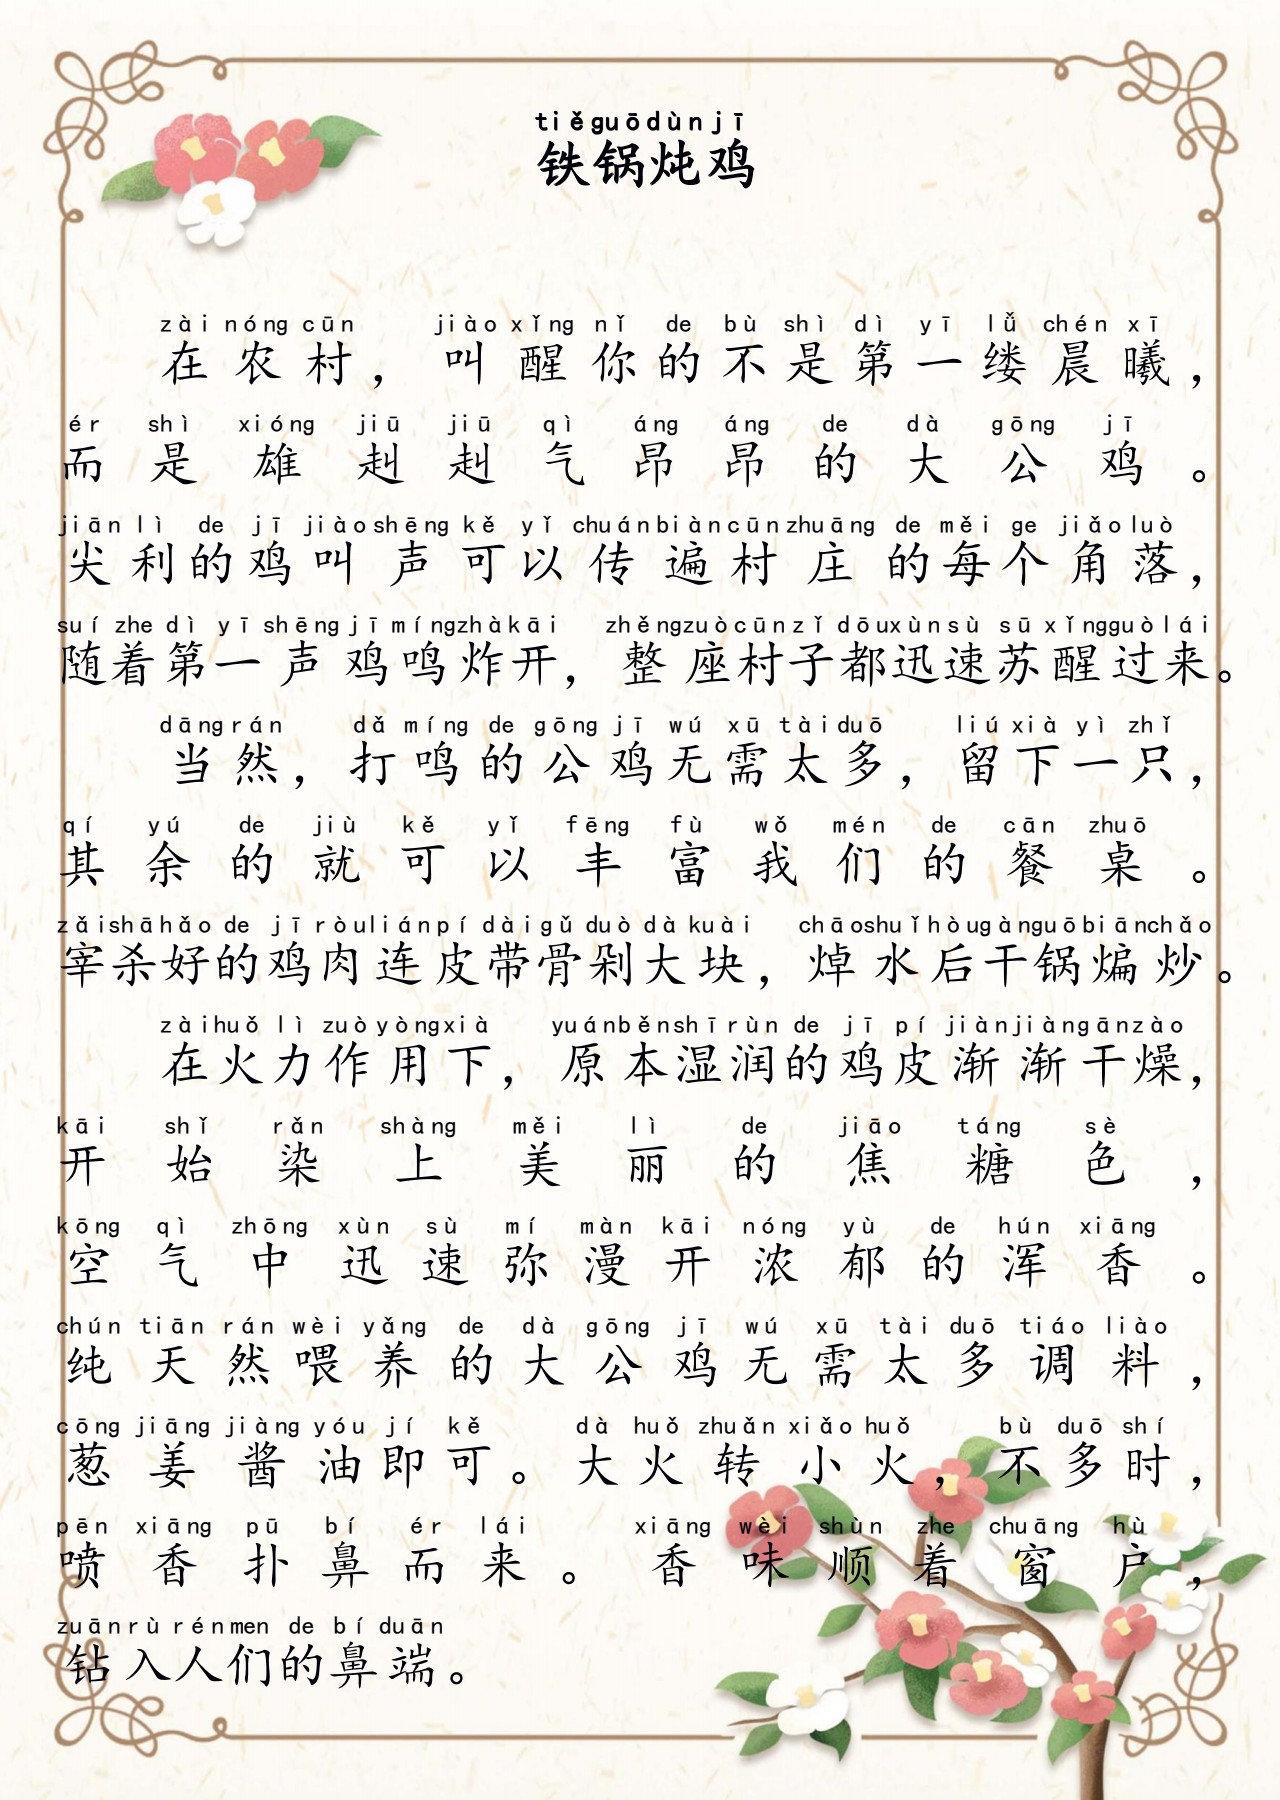 tiěguōdùnjī
铁锅炖鸡
zài nóng cūn jiào xǐng nǐ de bù shì dì yī lǚ chén xī
在农村，叫醒你的不是第一缕晨曦，
ér shì xióng jiū jiū qì áng áng de dà gōng jī
而是雄赳赳气昂昂的大公鸡。
jiān lì de jī jiào shēng kě yǐ chuán biàn cūn zhuāng de měi ge jiǎo luò
尖利的鸡叫声可以传遍村庄的每个角落，
suí zhe dì yī shēng jī míng zhà kāi zhěng zuò cūn zǐ dōu xùn sù sū xǐng guò lái
随着第一声鸡鸣炸开，整座村子都迅速苏醒过来。
dāng rán dǎ míng de gōng jī wú xū tài duō liú xià yì zhǐ
当然，打鸣的公鸡无需太多，留下一只，
qí yú de jiù kě yǐ fēng fù wǒ mén de cān zhuō
其余的就可以丰富我们的餐桌。
zǎi shā hǎo de jī ròu lián pí dài gǔ duò dà kuài chāo shuǐ hòu gàn guō biān chǎo
宰杀好的鸡肉连皮带骨剁大块，焯水后干锅煸炒。
zài huǒ lì zuò yòng xià yuán běn shī rùn de jī pí jiàn jiàn gān zào
在火力作用下，原本湿润的鸡皮渐渐干燥，
kāi shǐ rǎn shàng měi lì de jiāo táng sè
开始染上美丽的焦糖色，
kōng qì zhōng xùn sù mí màn kāi nóng yù de hún xiāng
空气中迅速弥漫开浓郁的浑香。
chún tiān rán wèi yǎng de dà gōng jī wú xū tài duō tiáo liào
纯天然喂养的大公鸡无需太多调料，
cōng jiāng jiàng yóu jí kě dà huǒ zhuǎn xiǎo huǒ bù duō shí
葱姜酱油即可。大火转小火，不多时，
pēn xiāng pū bí ér lái xiāng wèi shùn zhe chuāng hù
喷香扑鼻而来。香味顺着窗户，
zuān rù rén men de bí duān
钻入人们的鼻端。